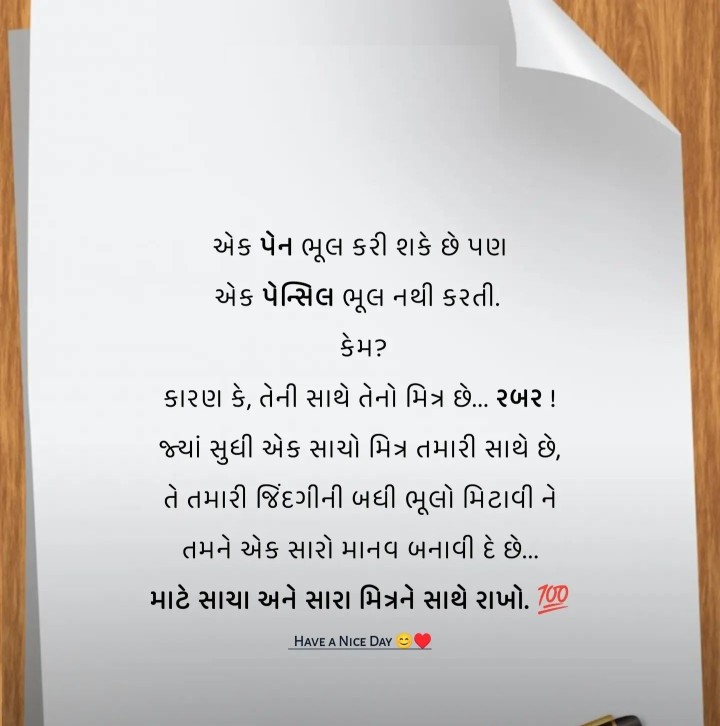 એક પેન ભૂલ કરી શકે છે પણ
એક પેન્સિલ ભૂલ નથી કરતી.
કેમ?
કારણ કે, તેની સાથે તેનો મિત્ર છે... રબર !
જ્યાં સુધી એક સાચો મિત્ર તમારી સાથે છે,
તે તમારી જિંદગીની બધી ભૂલો મિટાવી ને
તમને એક સારો માનવ બનાવી દે છે...
માટે સાચા અને સારા મિત્રને સાથે રાખો. 💯
HAVE A NICE DAY 😊♥️